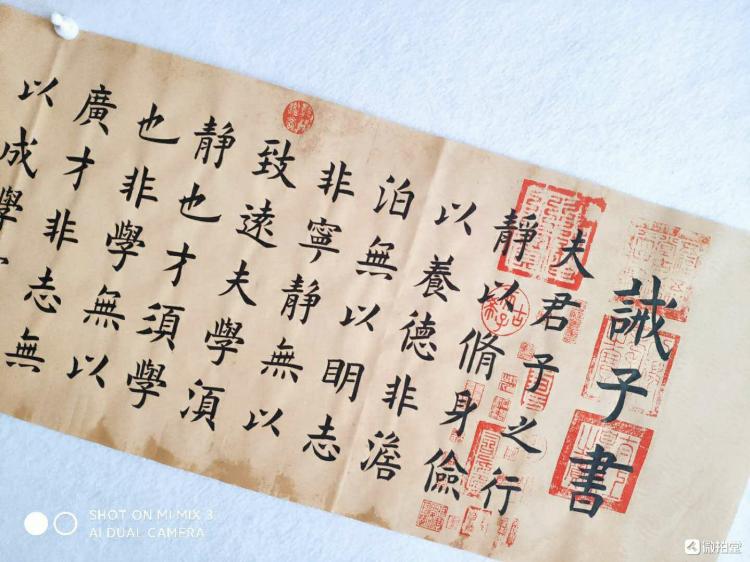 誡子書
夫君子之行
靜以脩身儉
以養德非澹
泊無以明志
非寧靜無以
致遠夫學須
靜也才須學
也非學無以
廣才非志無
以成學
SHOT ON MI MIX 3
AI DUAL CAMERA
微拍堂